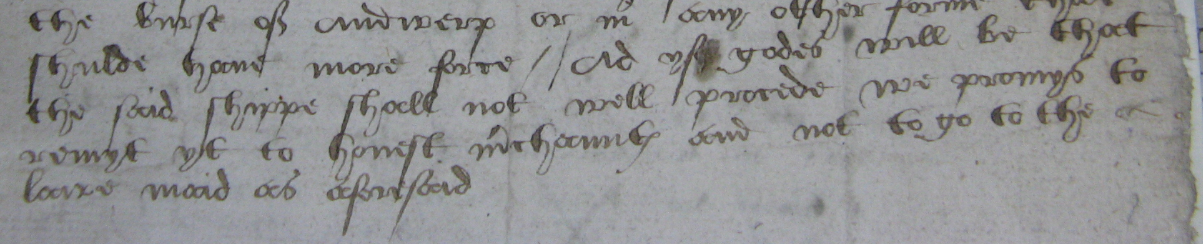 the burse of Andwerp or in any other forme that
shulde haue more force // Ad yf godes will be that
the said shippe shall not well procede we promys to
remyt yt to honest mchaunts and not to go to the
lawe maid as aforesaid